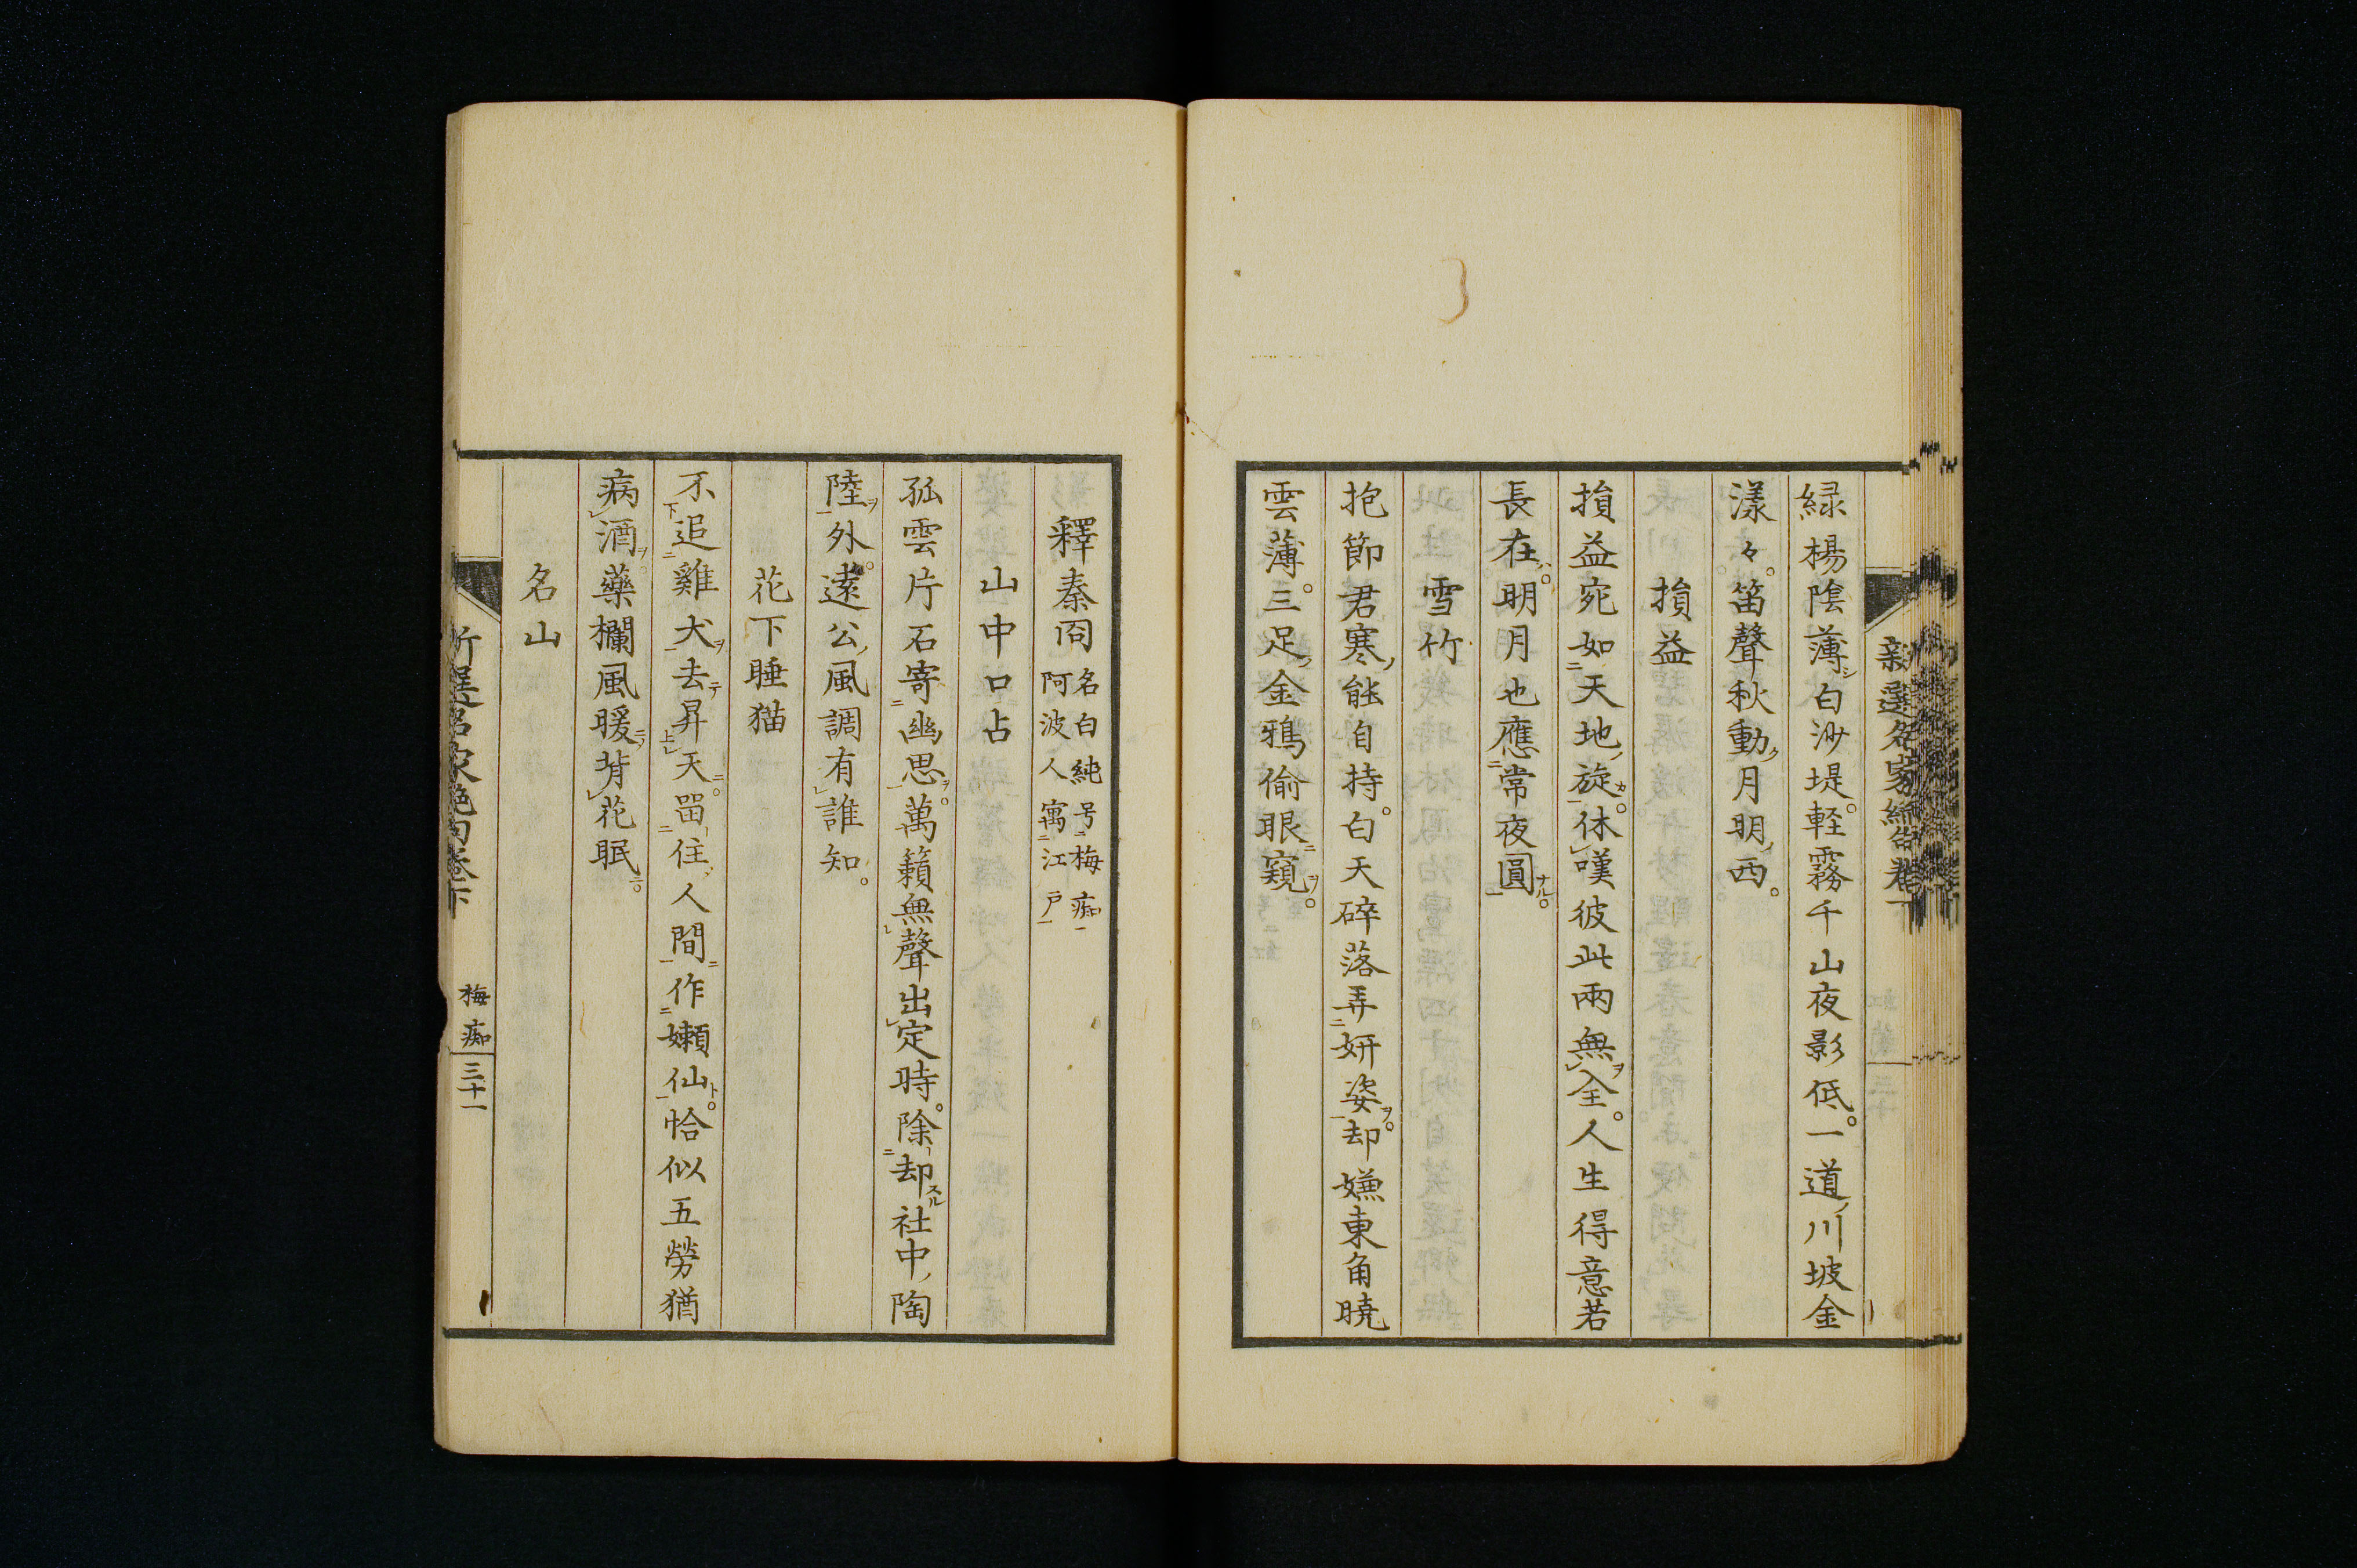 緑楊陰薄白沙堤。軽霧千山夜影低。一道川坡金
漾々。笛聲秋動月明西。
損益
損益宛如天地旋。休嘆彼此兩無全。人生得意若
長在。明月也應常夜圓。
雪竹
抱節君寒能自持。白天碎落弄妍姿。却嫌東角曉
雲薄。三足金鴉偷眼窺。
釋秦冏 名白純号梅痴
阿波人寓江戸
山中口占
孤雲片石寄幽思。萬籟無聲出定時。除却社中陶
陸外。遠公風調有誰知。
花下睡猫
不追雞犬去昇天。畱住人間作嬾仙。恰似五勞猶
病酒。藥欄風暖背花眠。
名山
新選名家絶句卷下
梅痴
三十一